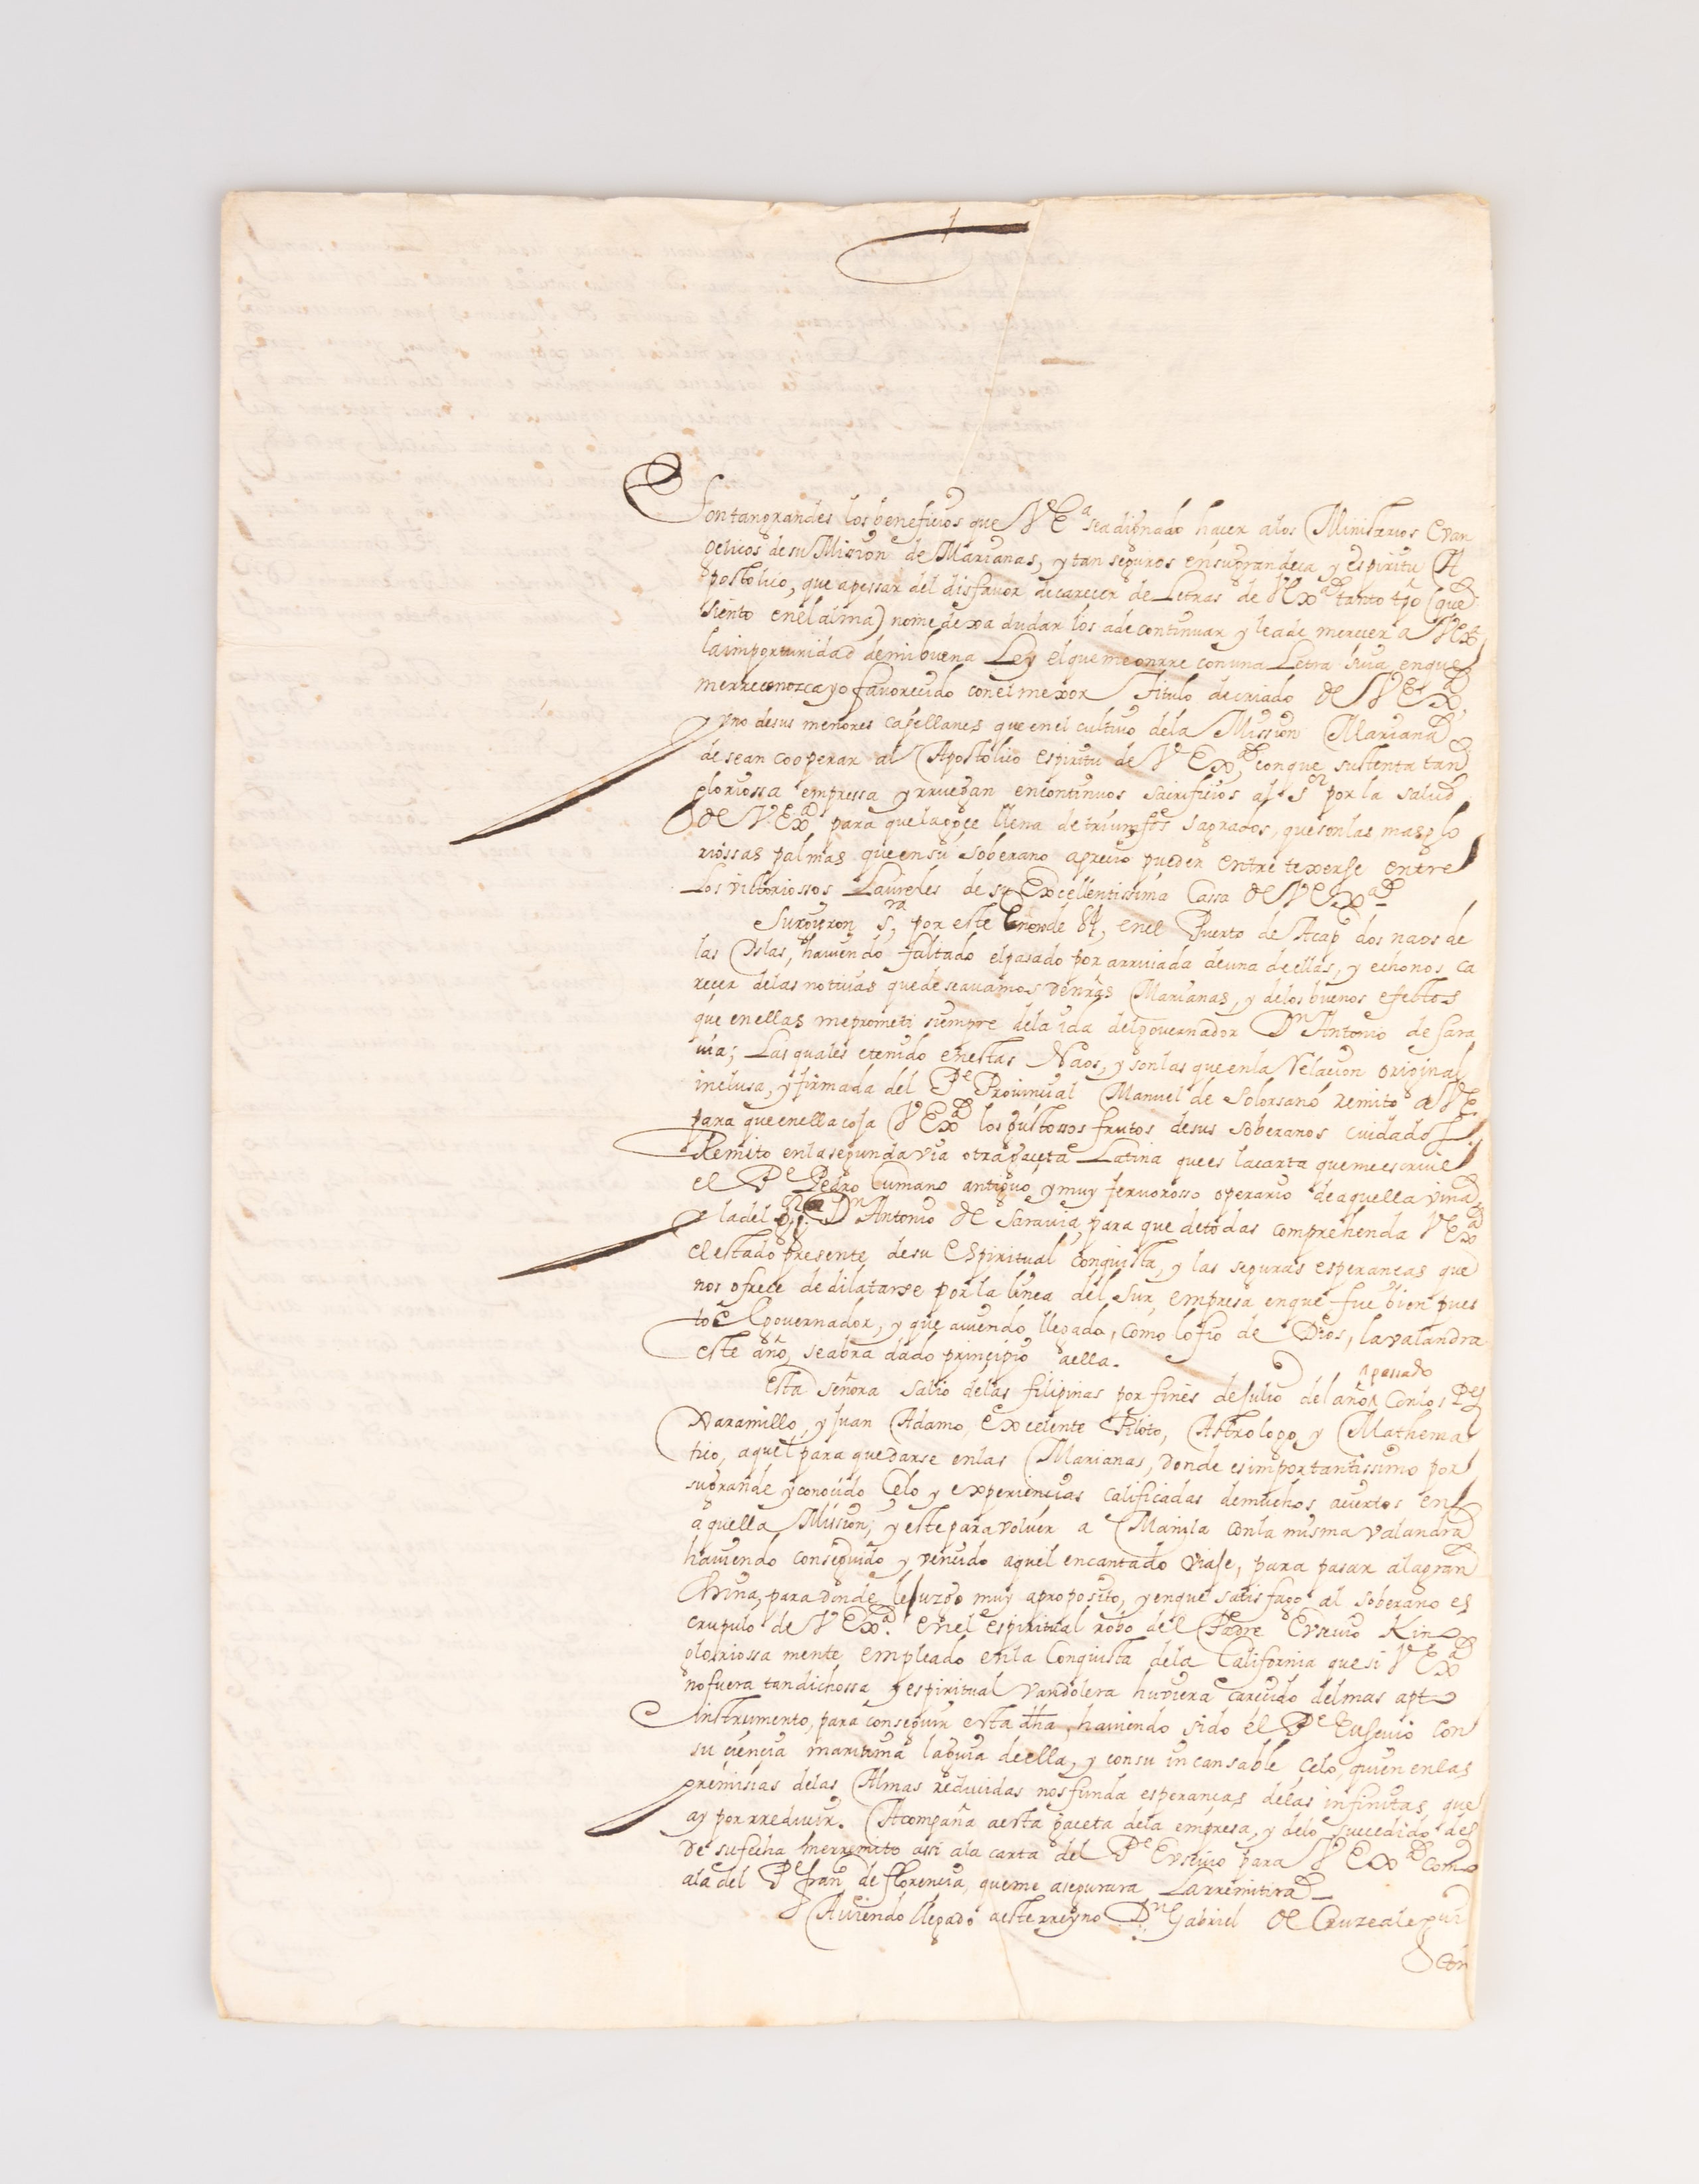 Son tan grandes los beneficios que V Eª sea dignado hacer a los Ministros Evan
gelicos de su Mision de Marianas, y tan seguros en su grandeça y espiritu A
postolico, que apessar del disfavor de carecer de Letras de V Exª tanto tpo (que
siento en el alma) no me dexa dudar los a de continuar y le a de merecer a V Exª
la importunidad de mi buena Ley el que me onrre con una Letra suia en que
me rreconozca yo favorecido con el mexor Titulo de criado de V Exª,
y uno de sus menores capellanes que en el cultivo de la Mission Mariana
desean cooperar al Apostolico espiritu de V Exª, con que sustenta tan
gloriossa empressa y rruegan en continuos sacrificios al Sr por la salud
de V. Exª para que la goçe llena de triumfos sagrados, que son las mas glo
riossas palmas que en su soberano aprecio pueden entre texerse entre
los victoriossos Laureles de su Excellentissima Cassa de V Exª
Surgieron Sra, por este Enero de 84, en el Puerto de Acapº dos naos de
las Islas, haviendo faltado el pasado por arriuada de una de ellas, y echonos ca
reçer de las noticias que deseavamos de nras Marianas, y de los buenos efectos
que en ellas me prometi siempre de la ida del governador Dn Antonio de Sara
via; Las quales e tenido en estas Naos, y son las que en la Relacion original
inclusa, y firmada del Pe Provincial Manuel de Solorsano remito a V E
para que en ella coja V Exª los gustosos frutos de sus soberanos cuidados.
Remito en la segunda via otra gaçeta Latina que es la carta que me escrive
el Pe Pedro Cumano antiguo y muy fervorosso operario de aquella viña
y la del Dn Antonio de Saravia, para que de todas comprehenda V Exª
el estado presente de su Espiritual conquista, y las seguras esperanças que
nos ofrece de dilatarse por la linea del Sur, empresa en que fue bien pues
to el governador, y que aviendo llegado, como lo fio de Dios, la valandra
este año, se abra dado principio a ella.
Esta señora salio de las filipinas por fines de Julio del año passado con los Pes
Xaramillo, y Juan Adamo, excelente Piloto, Astrologo, y Mathema
tico, aquel para quedarse en las Marianas, donde es importantissimo por
su grande y conocido Celo y experiencias calificadas de muchos aciertos en
aquella Mission; y este para volver a Manila con la misma valandra
haviendo conseguido y vencido aquel encantado viaje, para pasar a la gran
China, para donde le juzgo muy aproposito, y en que satisfago al soberano es
crupulo de V Exª. en el espiritual robo del Padre Eusevio Kino
gloriossa mente empleado en la Conquista de la California que si V Exª
no fuera tan dichossa y espiritual vandolera huviera carecido del mas apto
instrumento, para conseguir esta dha, haviendo sido el Pe Eusevio con
su ciencia maritima la guia de ella, y con su incansable celo, quien en las
premisias de las Almas reducidas nos funda esperanças de las infinitas, que
ay por rreducir. Acompaña a esta gaceta de la empresa, y de lo succedido des
de su fecha me rremito assi a la carta del Pe Eusevio para V Exª como
a la del Pe fran de florencia, que me asegurara la rremitira
Aviendo llegado a este rreyno Dn Gabriel de Cruzealegui